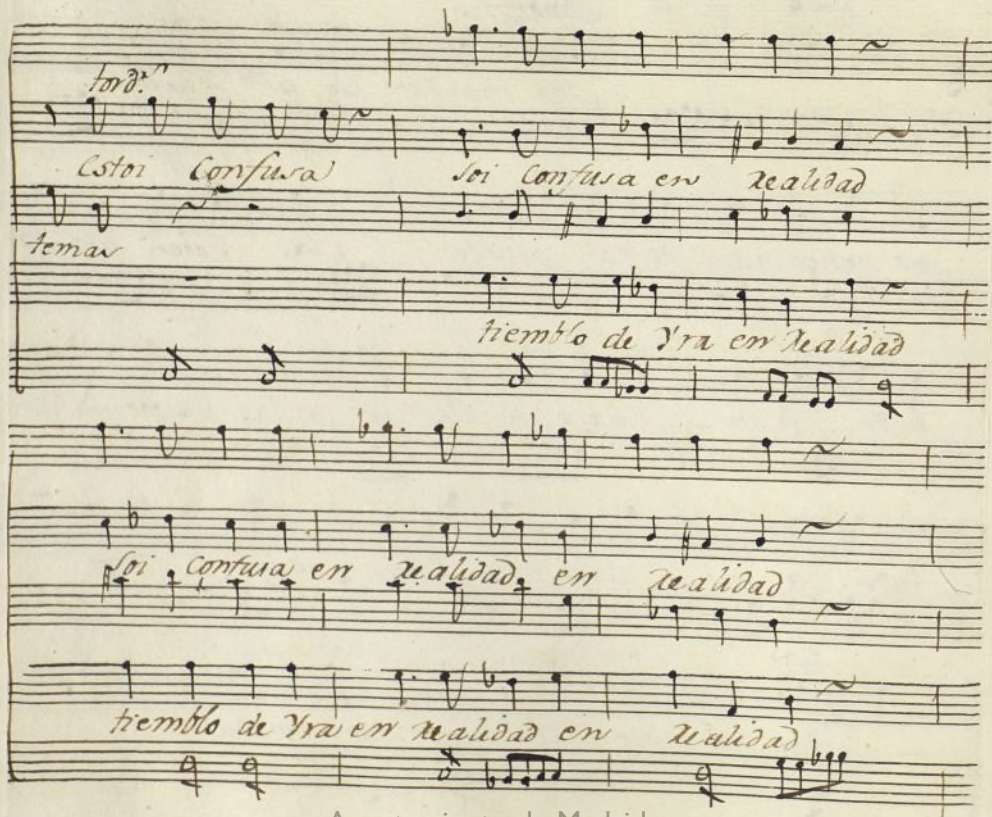 tord.ª
Estoi Confusa soi Confusa en realidad
temar
tiemblo de Yra en realidad
soi Confusa en realidad en realidad
tiemblo de Yra en realidad en realidad
Ayuntamiento de Madrid